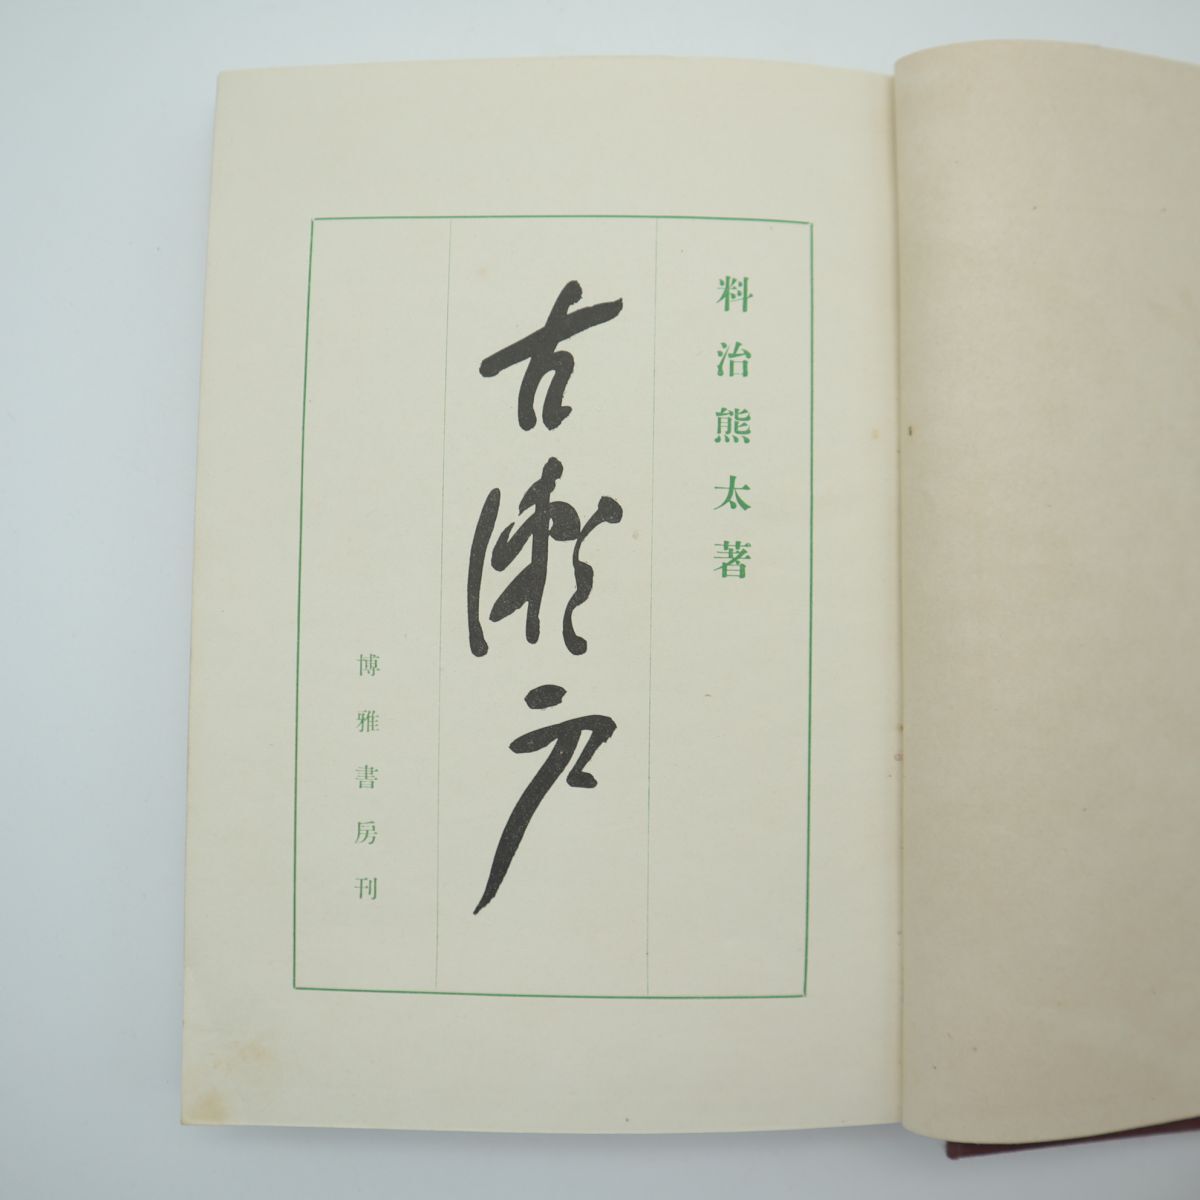 料治熊太著
古瀬戸
博雅書房刊